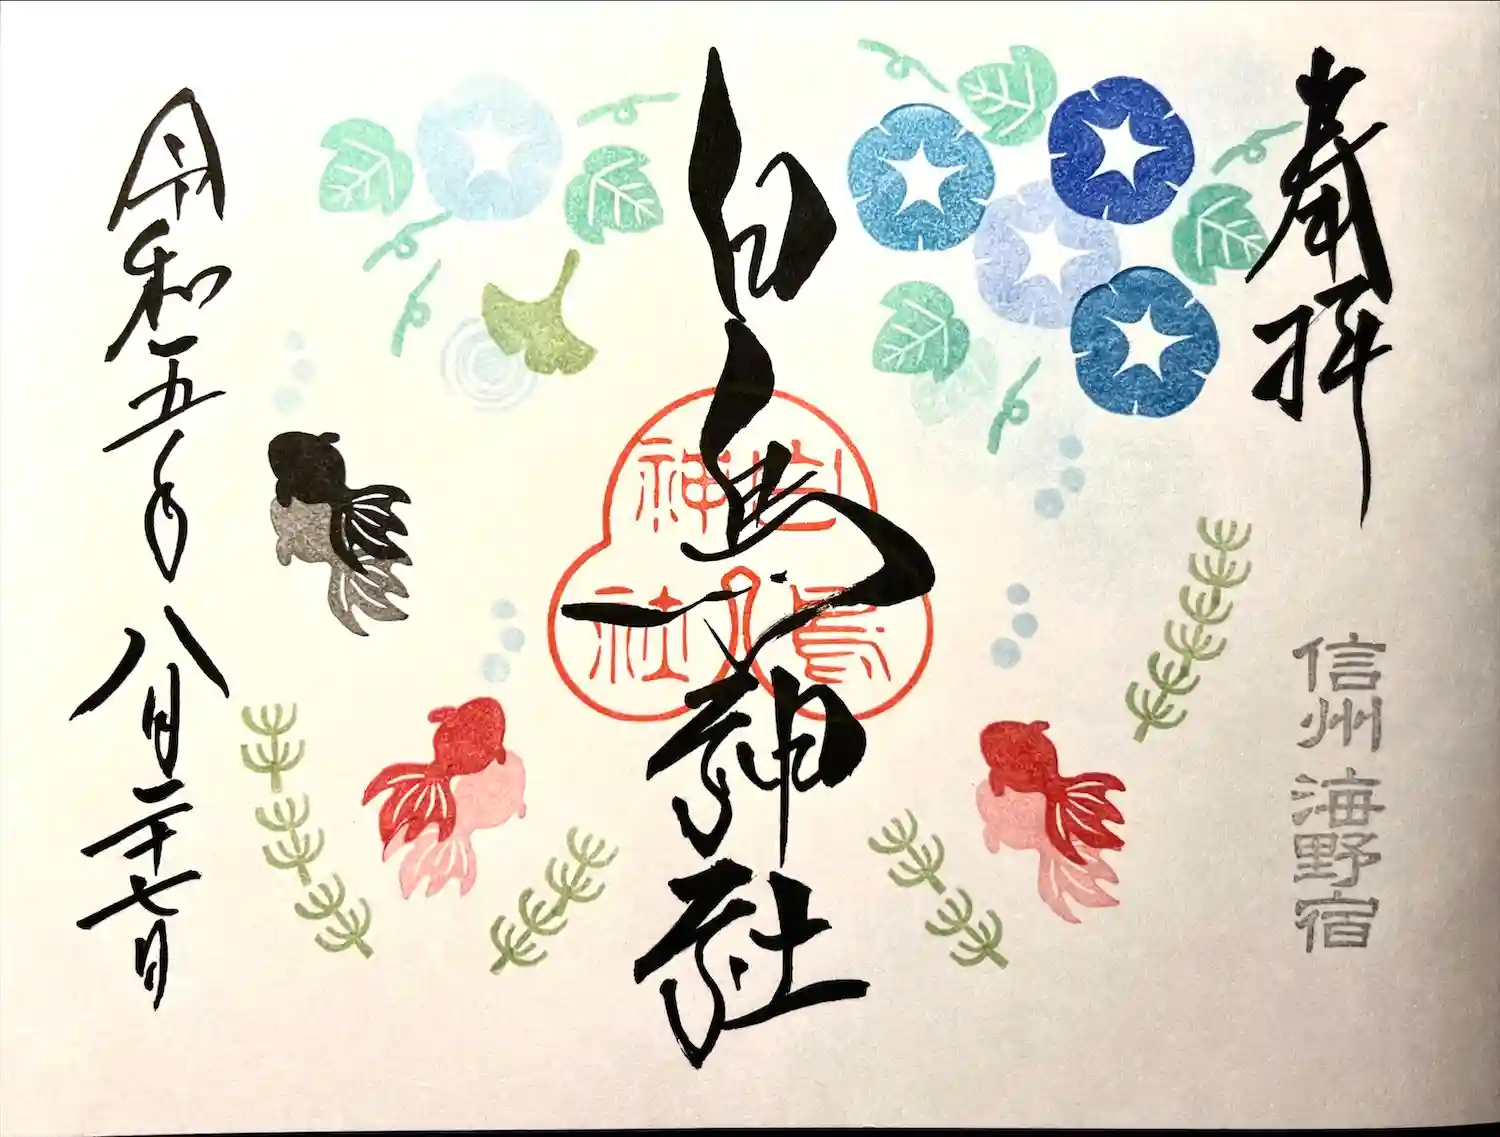 奉拝
信州 海野宿
白鳥神社
白鳥神社
令和五年八月二十七日